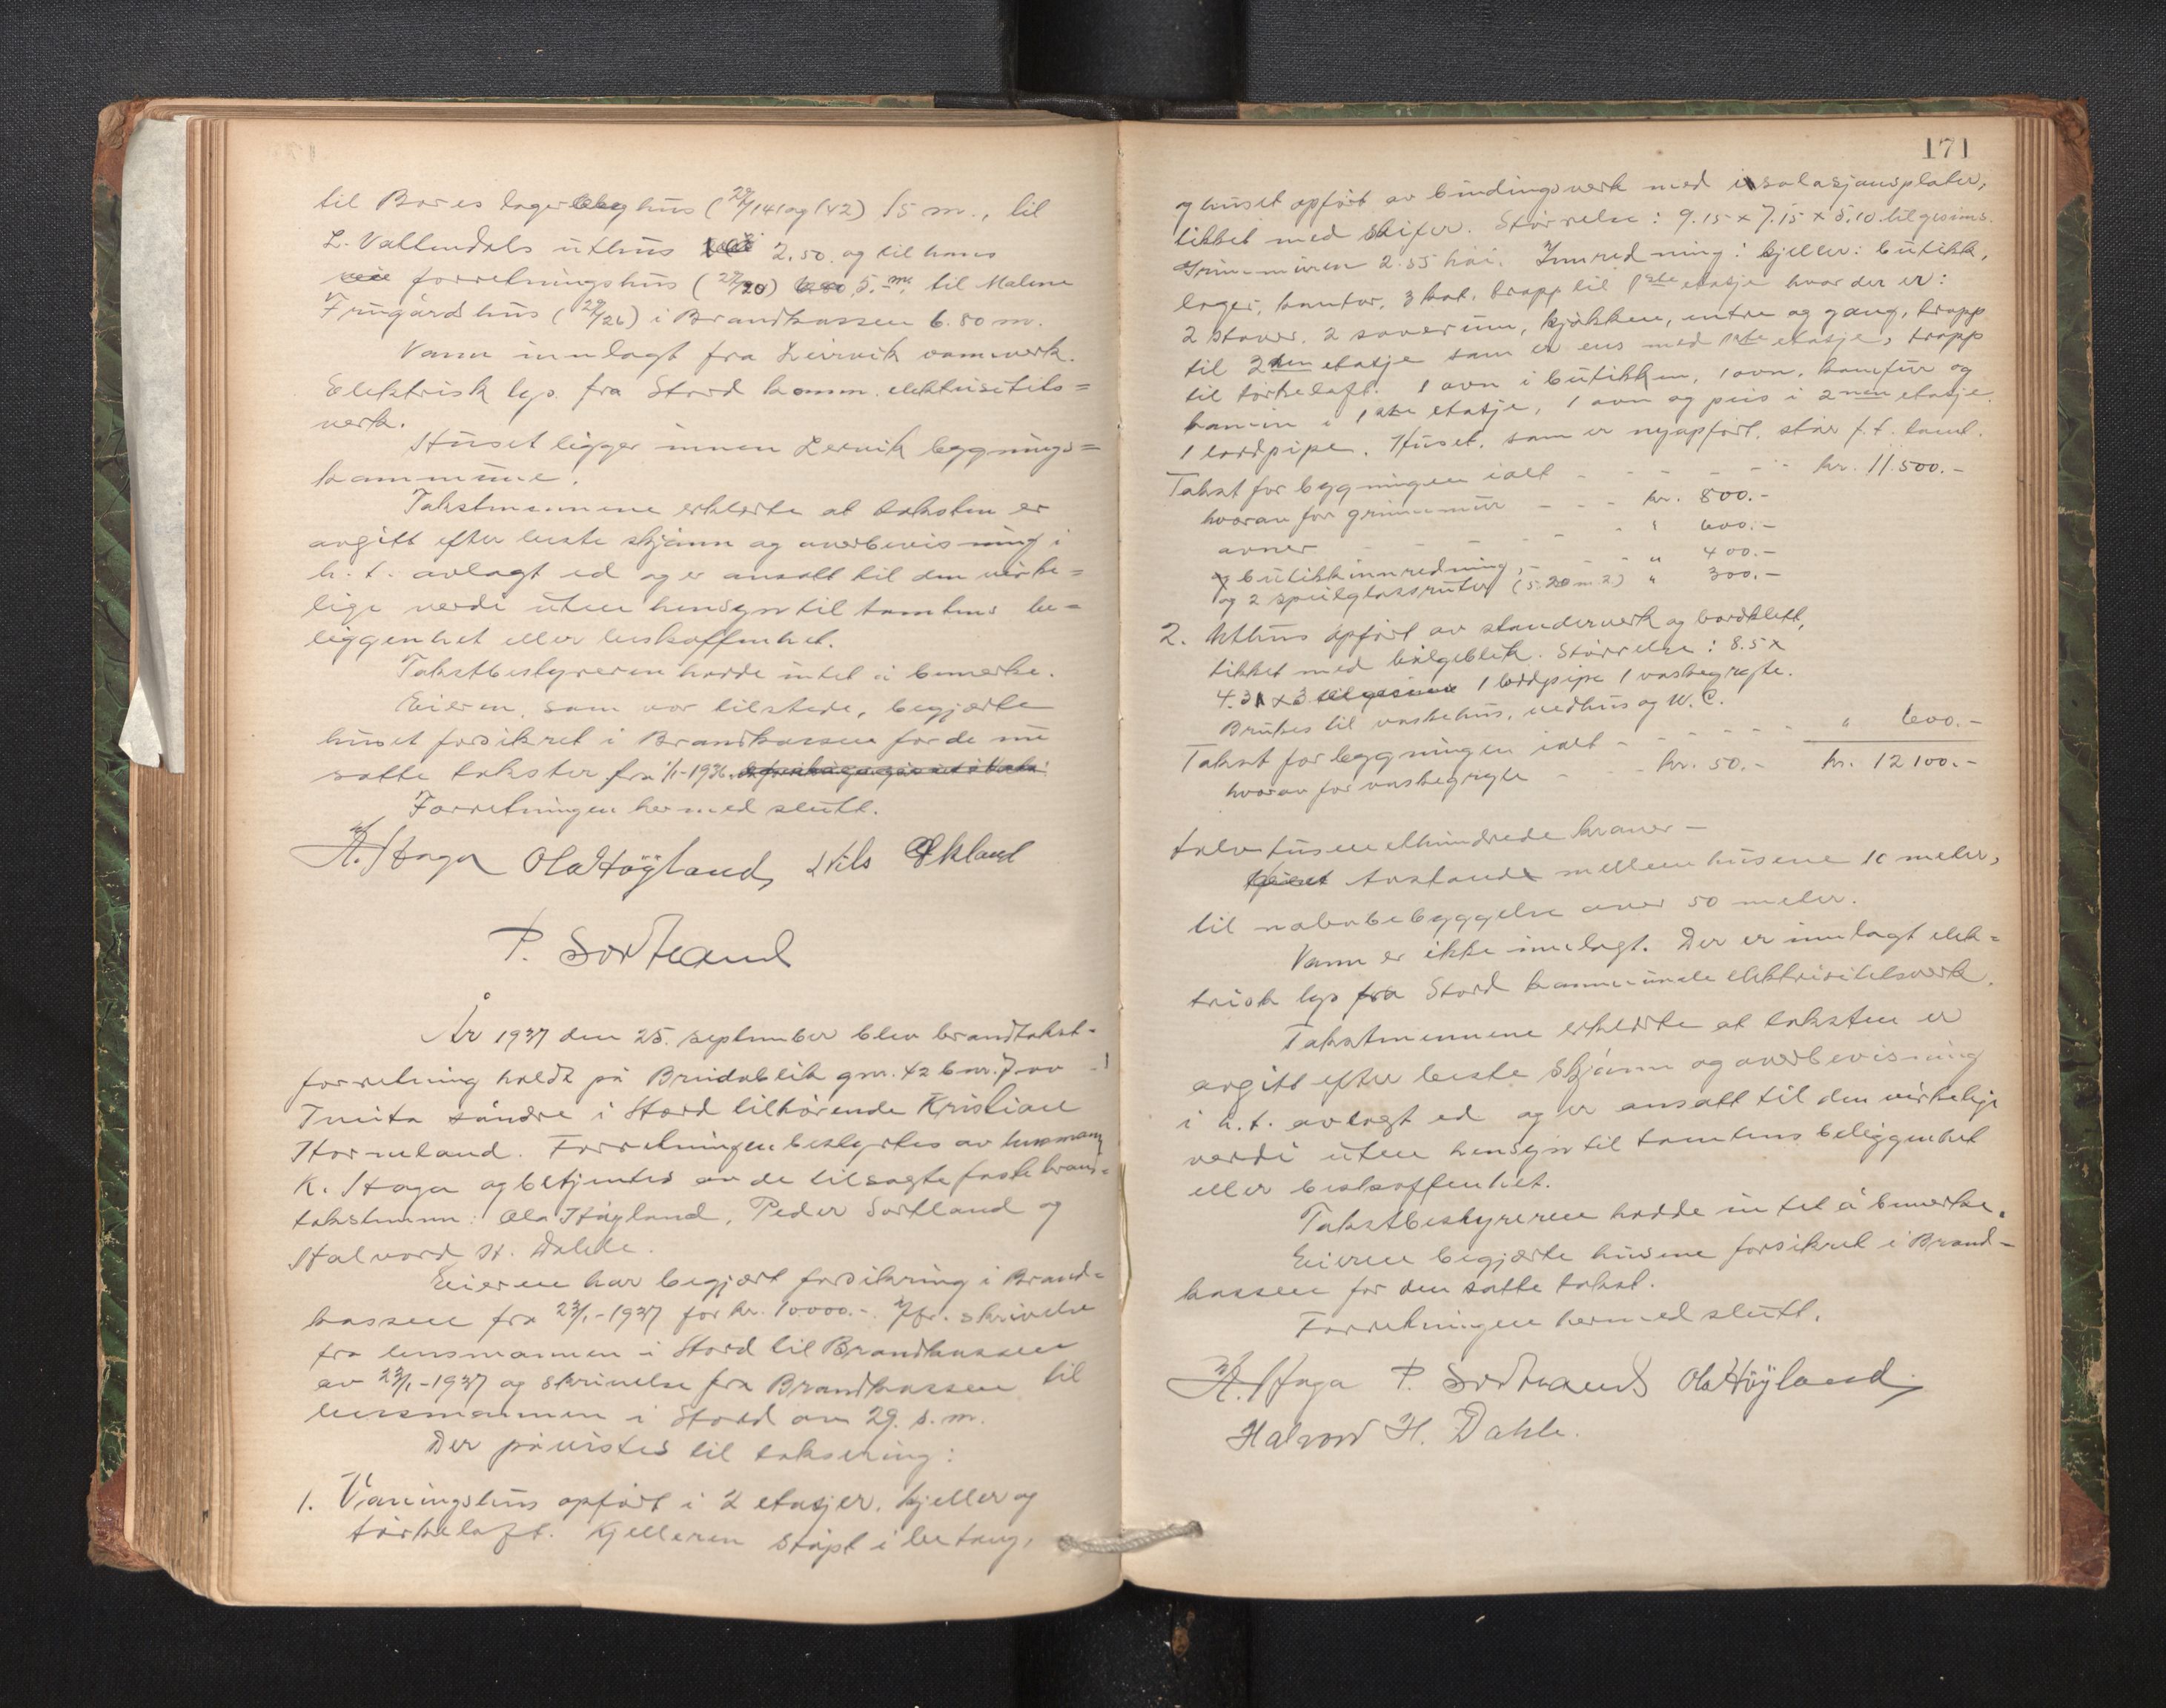 til Bores lager hus (27/141 og 142) 15 m., til
L. Vallendals uthus 2.50. og til hans
forretningshus (27/20) 5.- m. til Malene
Frugårds hus (27/26) i Brandkassen 6.80 m.
Vann innlagt fra Leirvik vannverk.
Elektrisk lys fra Stord komm. elektrisitets=
verk.
Huset ligger innen Lervik bygnings=
kommune.
Takstmennene erklærte at taksten er
avgitt efter beste skjønn og overbevisning i
h. t. avlagt ed og er ansatt til den virke=
lige verdi uten hensyn til tomtens be=
liggenhet eller beskaffenhet.
Takstbestyreren hadde intet å bemerke.
Eieren, som var tilstede, begjærte
huset forsikret i Brandkassen for de nu
satte takster fra 1/1-1936.
Forretningen hermed slutt.
K. Haga Ola Høyland, Nils Økland
P. Sortland
År 1937 den 25. september blev brandtakst-
forretning holdt på Brudablik gnr. 42 bnr. 7 av
Tveita søndre i Stord tilhørende Kristian
Horneland. Forretningen bestyrtes av lensmann
K. Haga og betjentes av de tilsagte faste brand=
takstmenn: Ola Høyland, Peder Sortland og
Halvard H. Dahle.
Eieren har begjært forsikring i Brand=
kassen fra 23/1-1937 for kr. 10000.-. Jfr. skrivelse
fra lensmannen i Stord til Brandkassen
av 23/1-1937 og skrivelse fra Brandkassen til
lensmannen i Stord av 29. s. m.
Der påvistes til taksering:
1. Våningshus opført i 2 etasjer, kjeller og
tørkeloft. Kjelleren støpt i betong,
171
og huset opført av bindingsverk med isolasjonsplater,
tekket med skifer. Størrelse: 9.15 x 7.15 x 5.10 til gesims.
Grunnmuren 2.55 høi. Innredning: kjeller: butikk,
lager, kontor, 3 kot, trapp til 1ste etasje hvor der er:
2 stover, 2 soverum, kjøkken, entre og gang, trapp
til 2nen etasje som er ens med 1ste etasje, trapp
til tørkeloft. 1 ovn i butikken, 1 ovn, komfur og
kamin i 1ste etasje, 1 ovn og peis i 2nen etasje.
1 lordpipe. Huset, som er nyopført, står f. t. tomt.
Takst for bygningen ialt - - - - - kr. 11.500.-
hvorav for grunnmur - - - kr. 800.-
ovner - - - - - " 600.-
butikkinnredning, - - - " 400.-
og 2 speilglassruter (5.20 m2) " 300.-
2. Uthus opført av standerverk og bordklett,
tekket med bølgeblik. Størrelse: 8.5 x
4.31 x 3 1 lordpipe 1 vaskegryte.
Brukes til vaskehus, vedhus og W.C.
Takst for bygningen ialt - - - - - " 600.-
hvorav for vaskegryte - - - kr. 50.- kr. 12100.-
tolv tusen etthundrede kroner -
Avstande mellem husene 10 meter,
til nabobebyggelse over 50 meter.
Vann er ikke innlagt. Der er innlagt elek=
trisk lys fra Stord kommunale elektrisitetsverk.
Takstmennene erklærte at taksten er
avgitt efter beste skjønn og overbevisning
i h. t. avlagt ed og er ansatt til den virkelige
verdi uten hensyn til tomtens beliggenhet
eller beskaffenhet.
Takstbestyreren hadde intet å bemerke.
Eieren begjærte husene forsikret i Brand-
kassen for den satte takst.
Forretningen hermed slutt.
K. Haga P. Sortland Ola Høyland,
Halvard H. Dahle.